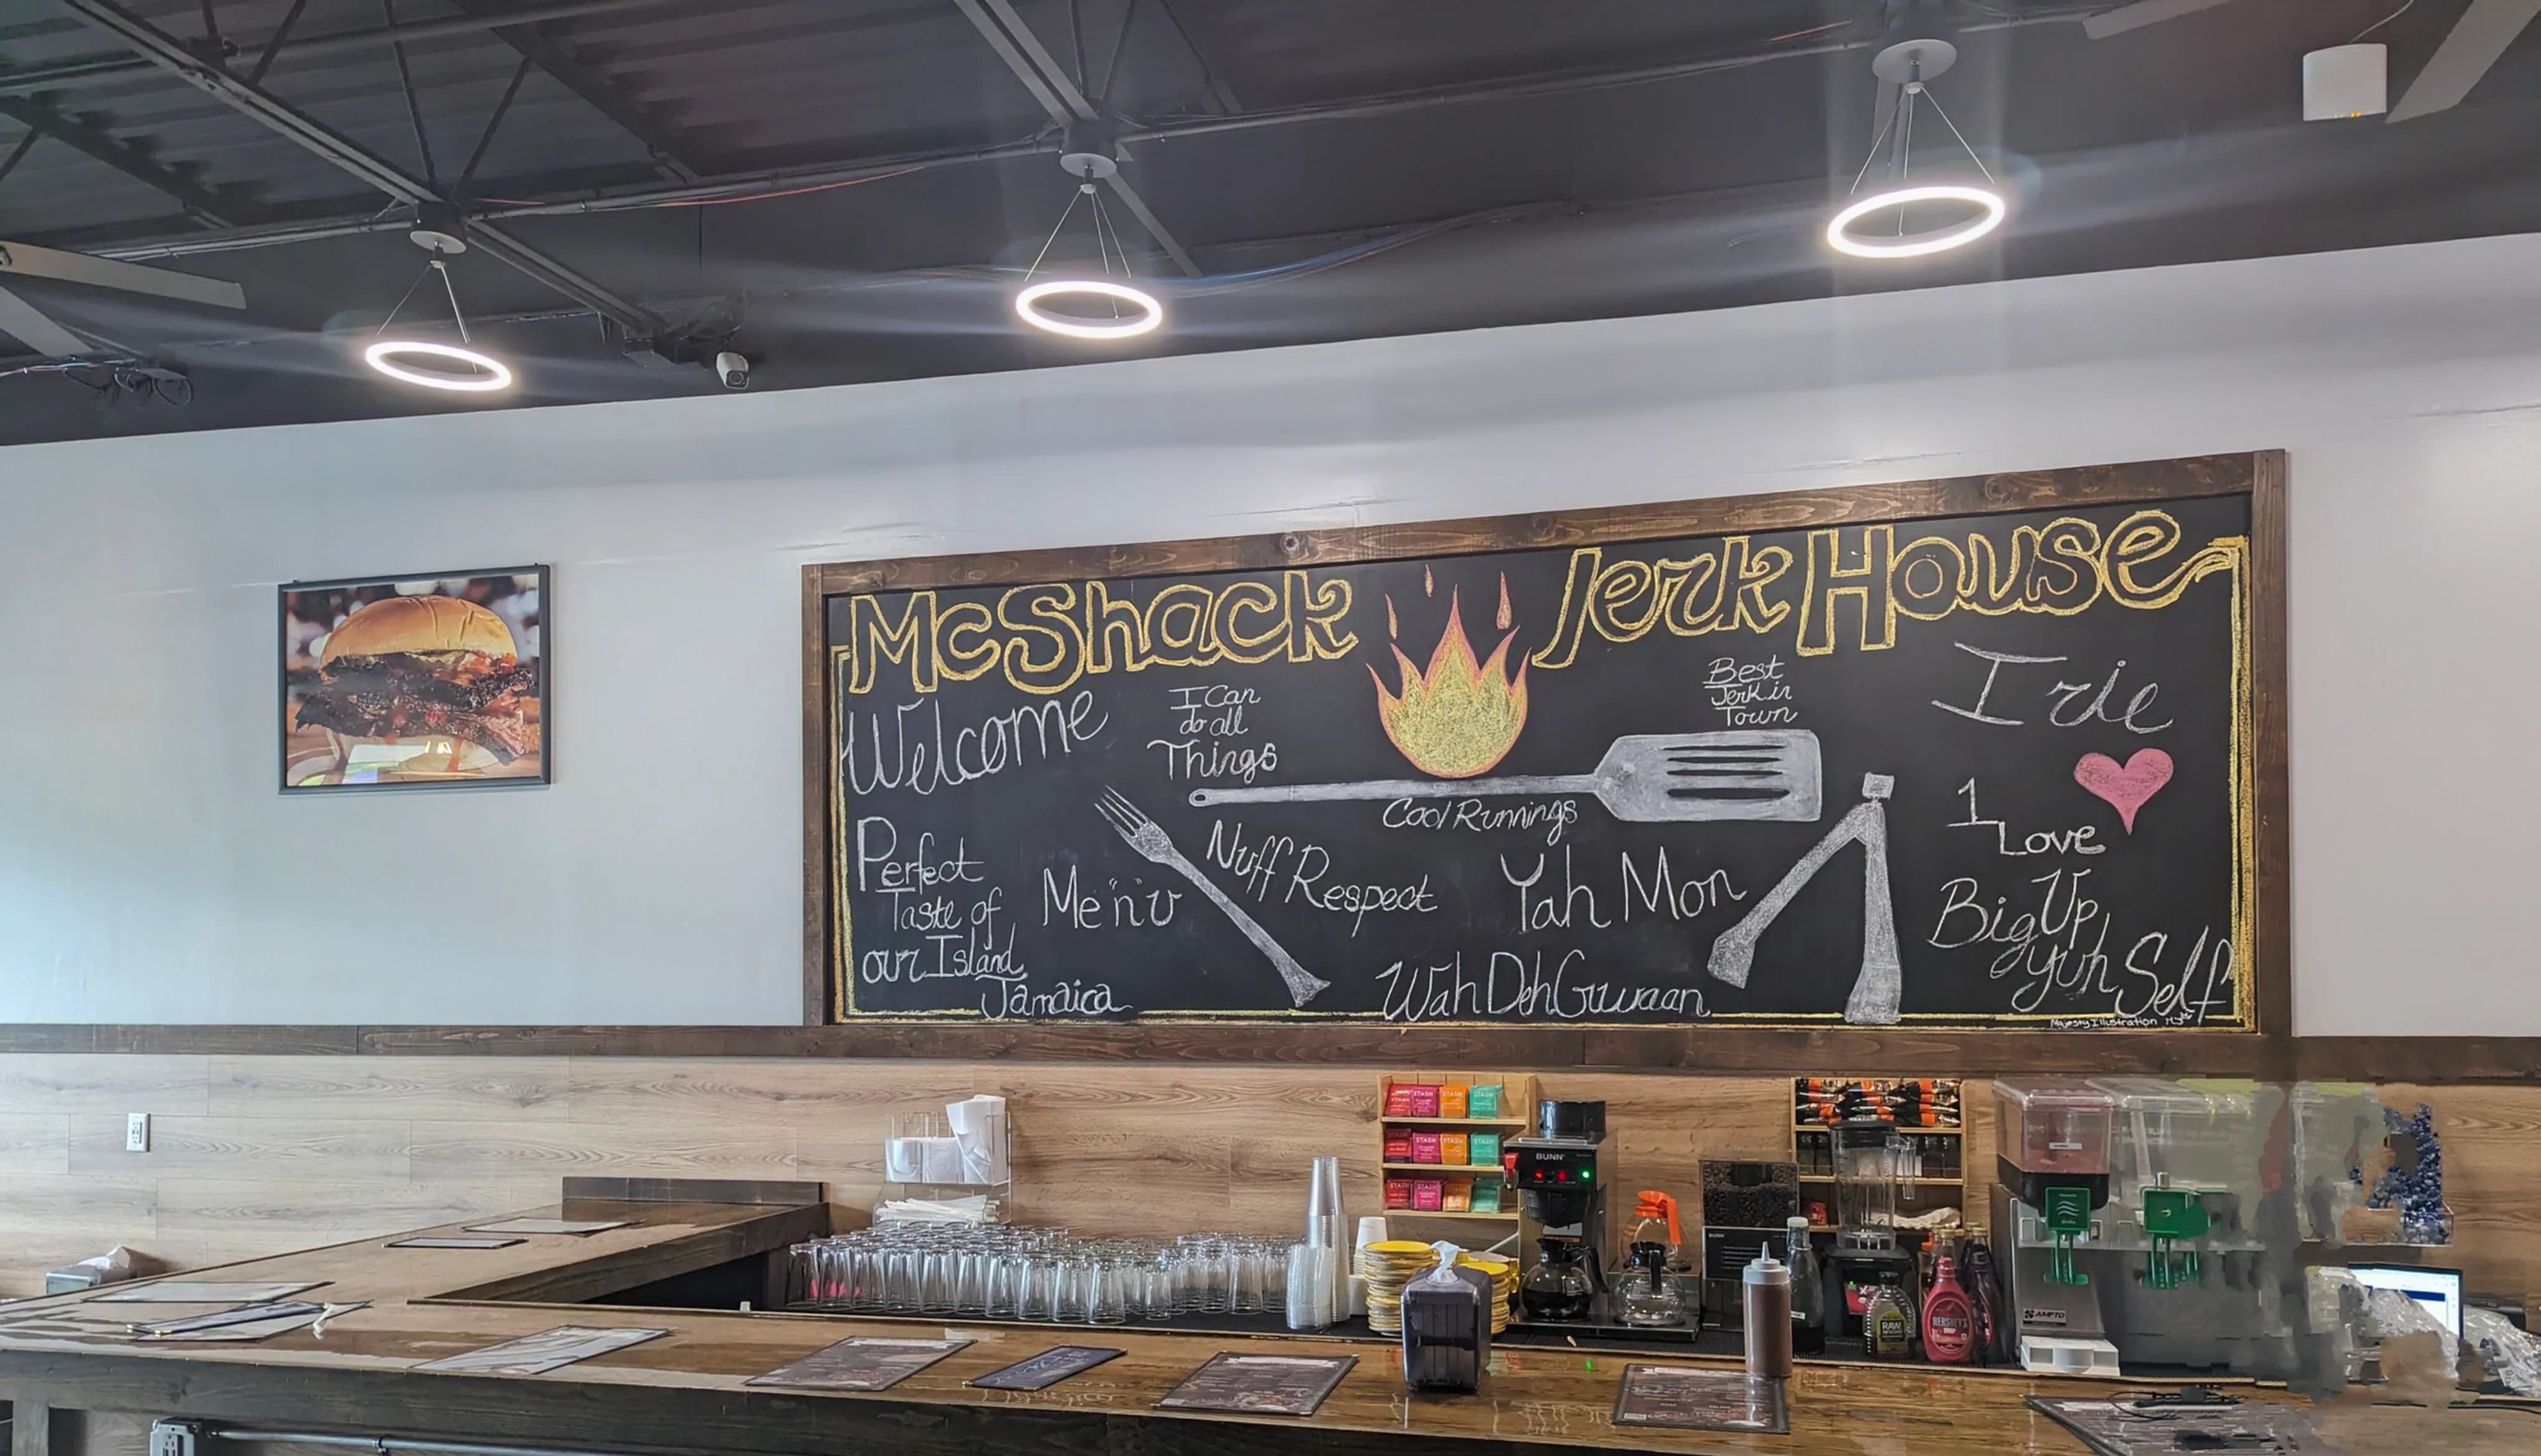 McShack Jerk House
Welcome
I Can
do all
Things
Best
Jerk in
Town
Irie
Cool Runnings
1
Love
Perfect
Taste of
our Island
Jamaica
Me"n"u
Nuff Respect
Yah Mon
Wah Deh Gwaan
Big Up
yuh Self
Majesty Illustration
STASH STASH STASH
STASH STASH
STASH STASH
BUNN
BUNN
RAW
HERSHEY'S
SYRUP
AMPTO